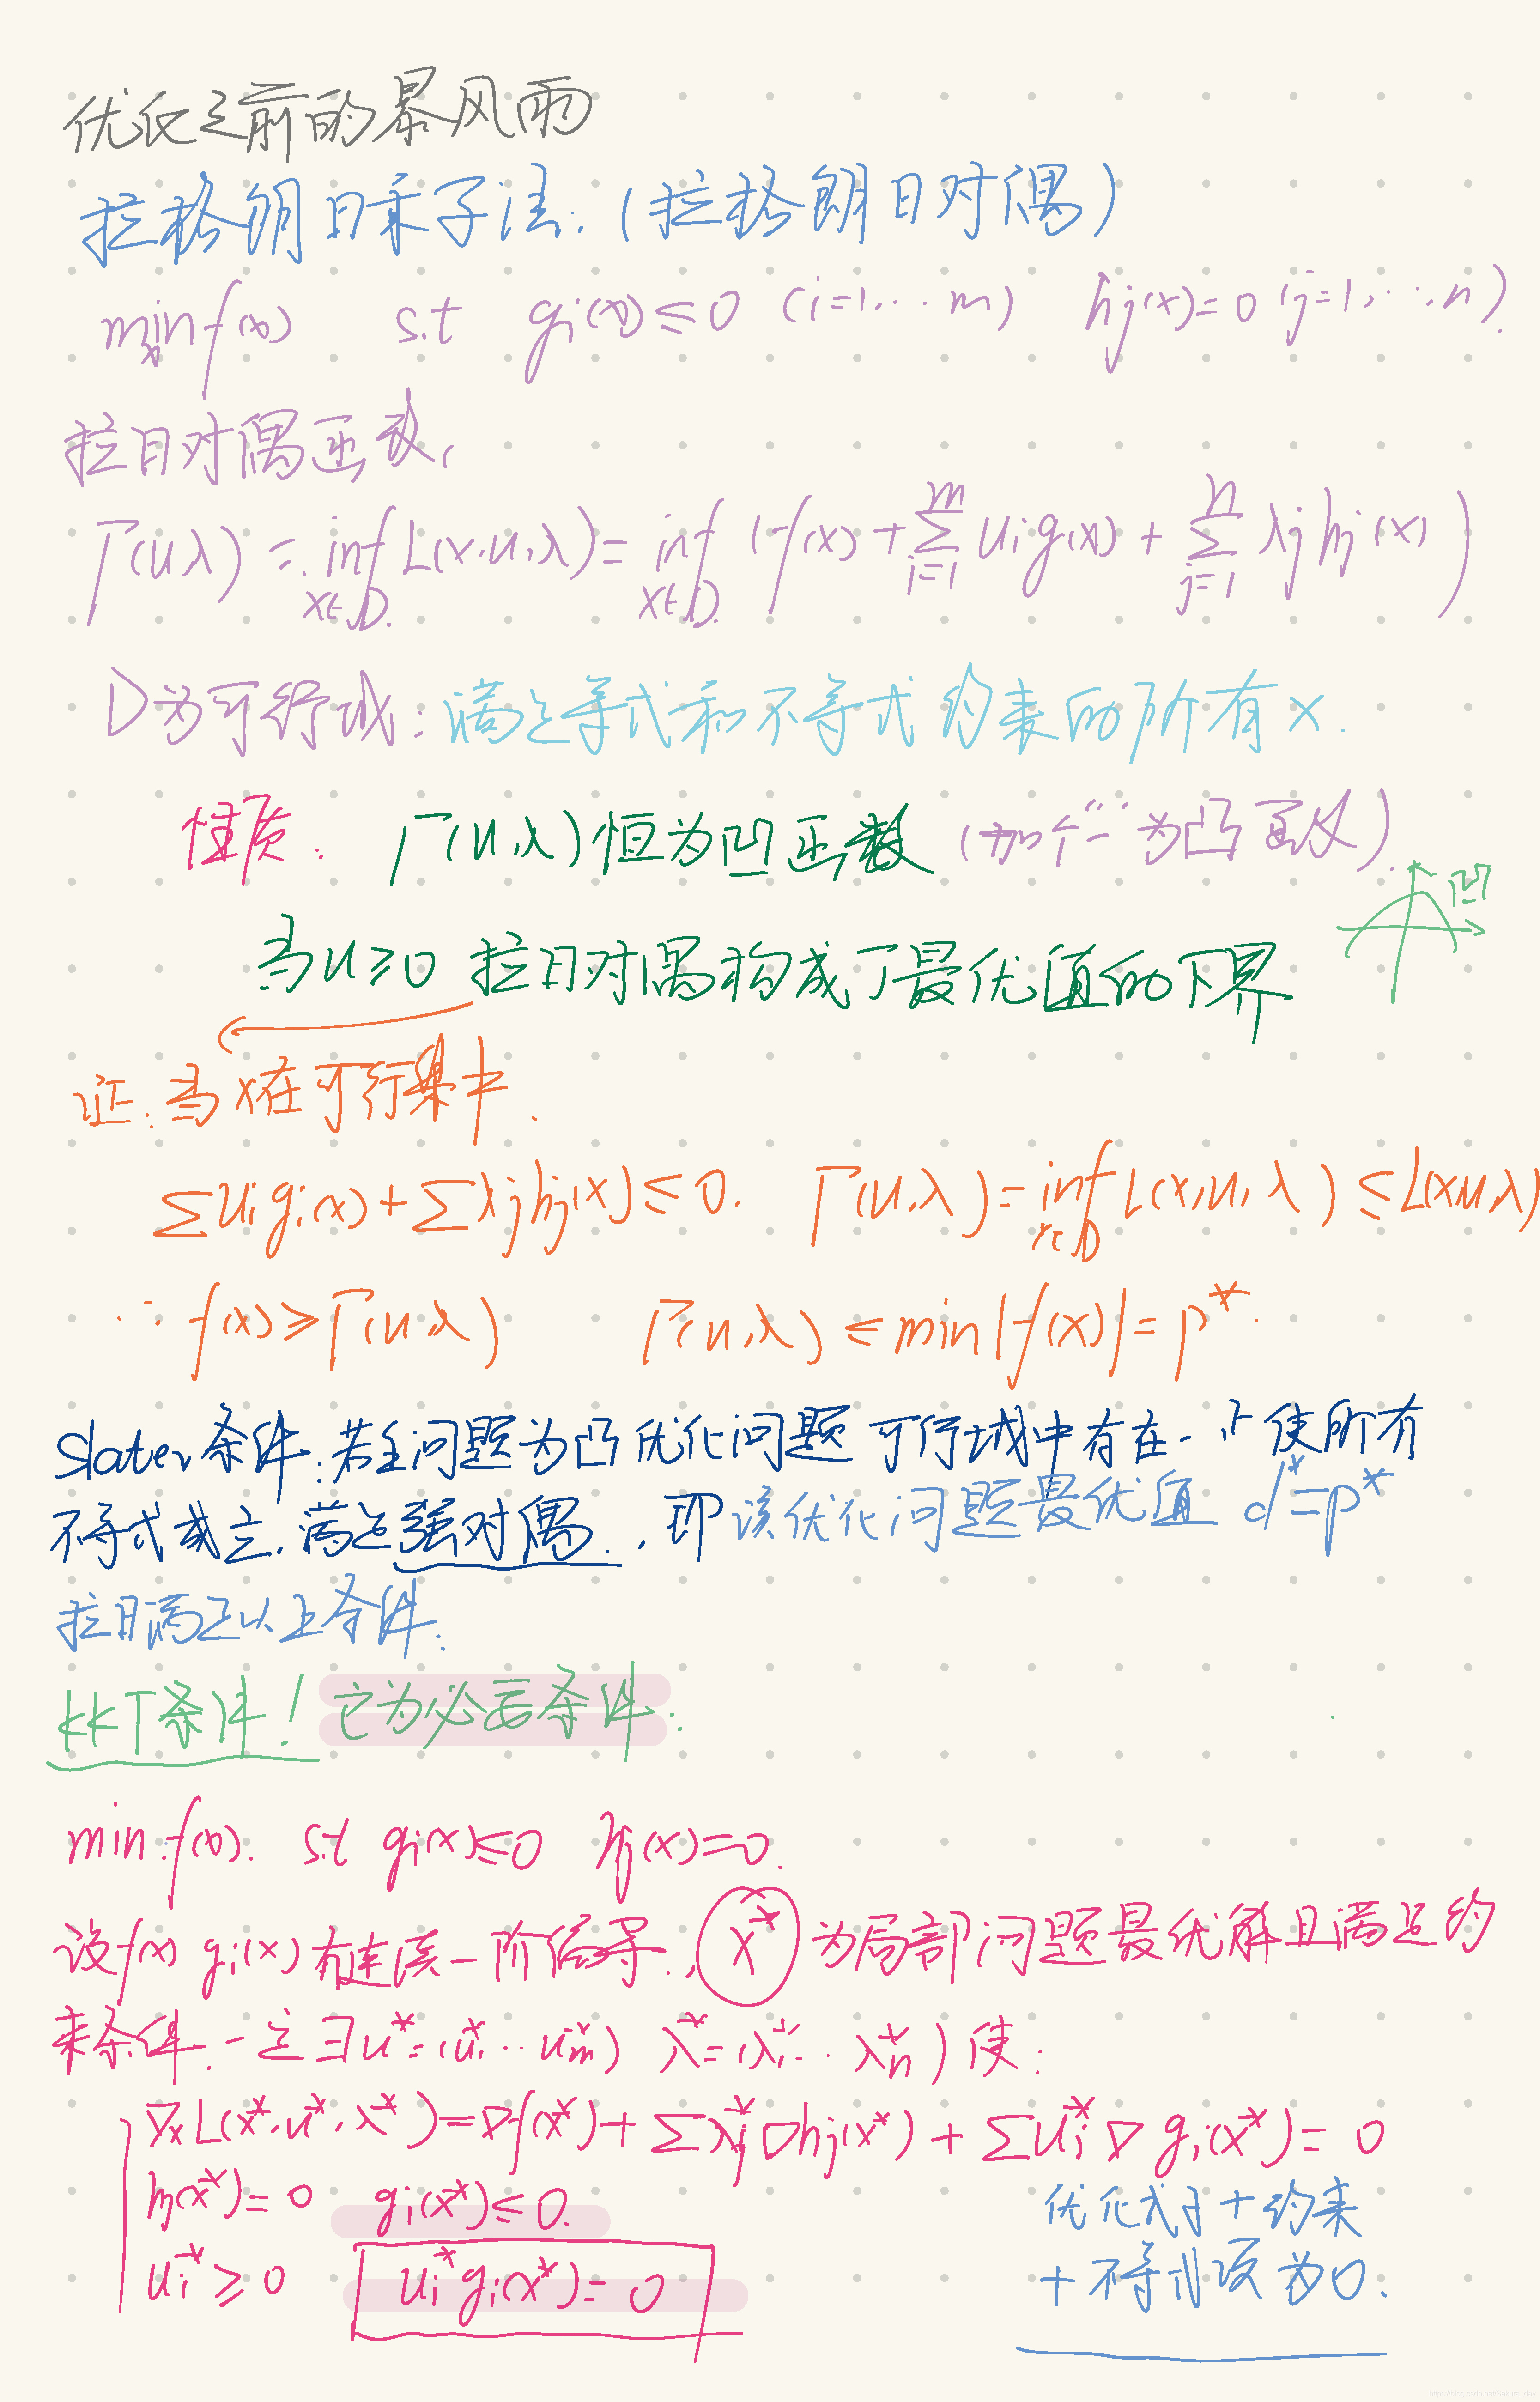 优化之前的暴风雨
拉格朗日乘子法.(拉格朗日对偶)
min f(x) s.t gi(x)≤0 (i=1,··m) hj(x)=0 (j=1,··,n).
x
拉日对偶函数,
Γ(u,λ) = inf L(x,u,λ) = inf (f(x) + Σ ui gi(x) + Σ λj hj(x))
x∈D. x∈D i=1 m j=1 n
D为可行域:满足等式和不等式约束的所有x.
性质. Γ(u,λ)恒为凹函数 (加个"-"为凸函数)
凹
当u≥0 拉日对偶构成了最优值的下界
证:当x在可行集中.
Σuigi(x)+Σλjhj(x)≤0. Γ(u,λ)=inf L(x,u,λ)≤L(x,u,λ)
x∈D
∴ f(x)≥Γ(u,λ) Γ(u,λ)≤min|f(x)|=p*.
Slater条件:若主问题为凸优化问题 可行域中存在一个使所有
不等式成立,满足强对偶.,即该优化问题最优值 d*=p*
拉日满足以上条件.
KKT条件! 它为必要条件:
min f(x). s.t gi(x)≤0 hj(x)=0.
设f(x) gi(x)有连续一阶偏导., x* 为局部问题最优解且满足约
束条件.一定∃u*=(u1*··um*) λ*=(λ1*··λn*)使:
∇xL(x*,u*,λ*)=∇f(x*)+Σλj*∇hj(x*)+Σui*∇gi(x*)=0
hj(x*)=0 gi(x*)≤0. 优化式子+约束
ui*≥0 ui*gi(x*)=0 +不等式项为0.